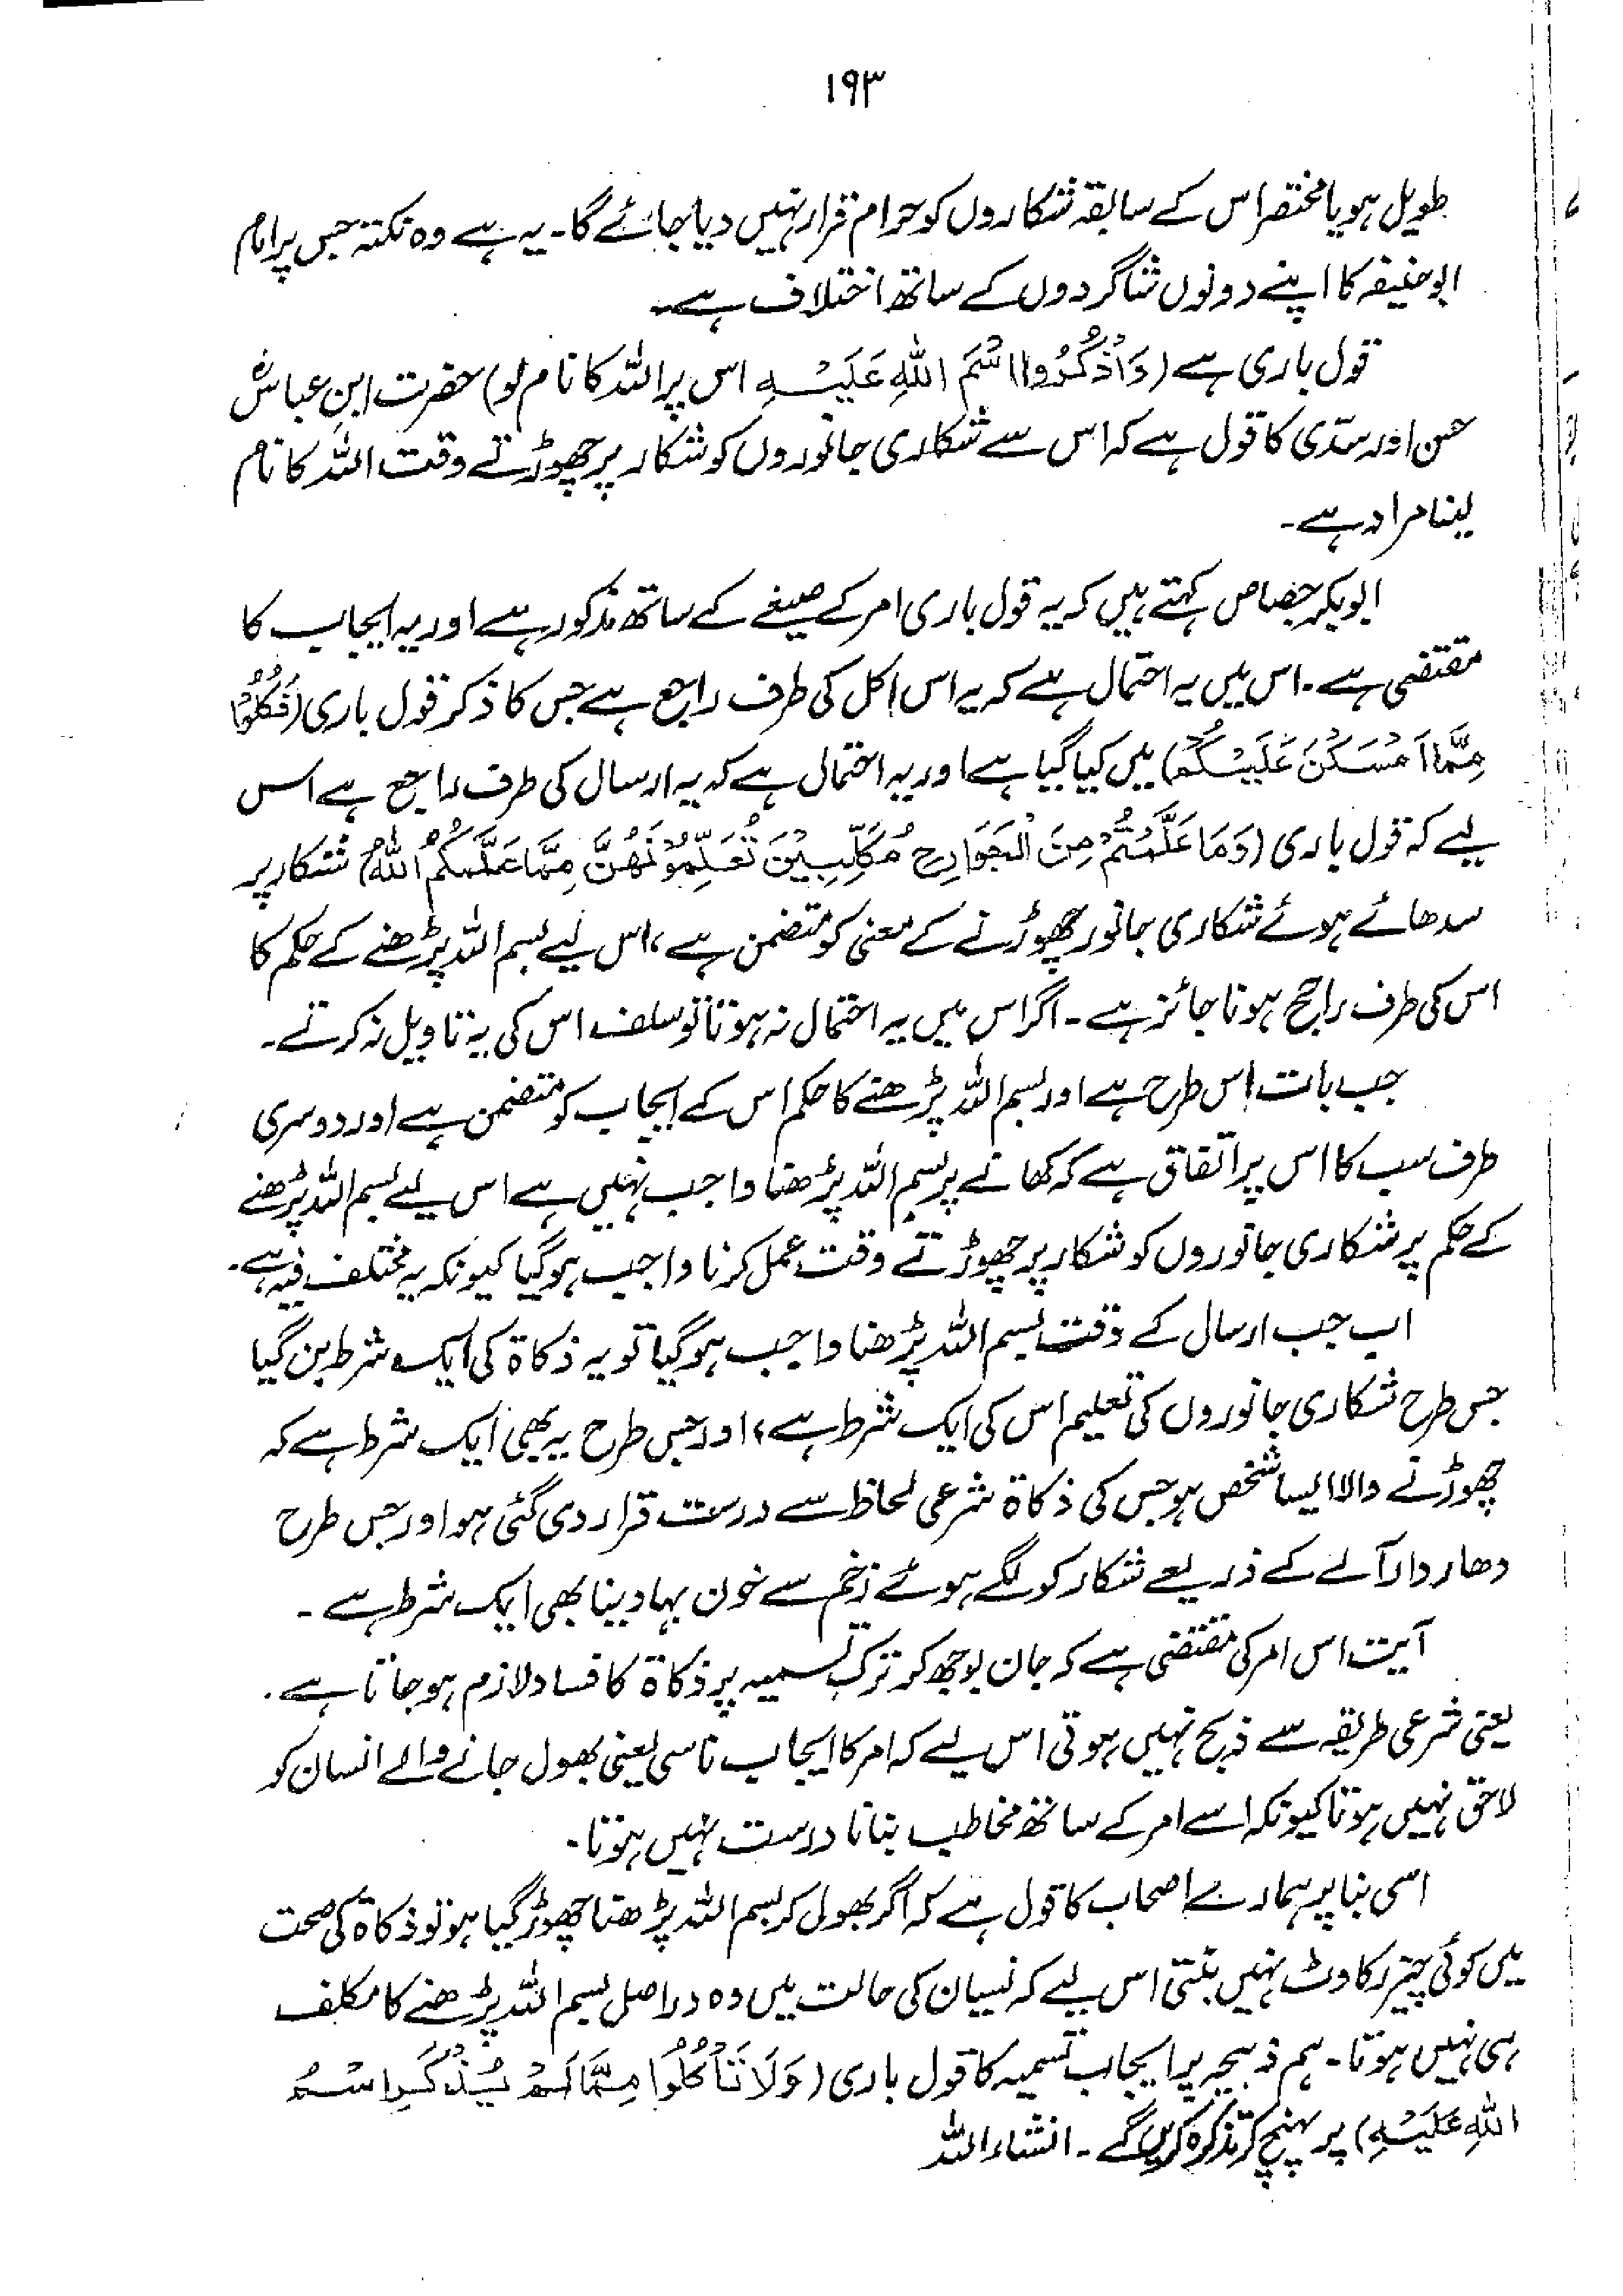 ۱۹۳
طویل ہو یا مختصر اس کے سابقہ شکاروں کو حرام قرار نہیں دیا جائے گا۔ یہ ہے وہ نکتہ جس پر امام
ابوحنیفہ کا اپنے دونوں شاگردوں کے ساتھ اختلاف ہے۔
قول باری ہے (وَاذْكُرُوا اسْمَ اللهِ عَلَيْهِ اس پر اللہ کا نام لو) حضرت ابن عباسؓ
حسن اور سدّی کا قول ہے کہ اس سے شکاری جانوروں کو شکار پر چھوڑتے وقت اللہ کا نام
لینا مراد ہے۔
ابوبکر جصاص کہتے ہیں کہ یہ قول باری امر کے صیغے کے ساتھ مذکور ہے اور یہ ایجاب کا
مقتضی ہے۔ اس میں یہ احتمال ہے کہ یہ اس اکل کی طرف راجع ہے جس کا ذکر قول باری (فَكُلُوْا
مِمَّا اَمْسَكْنَ عَلَيْكُمْ) میں کیا گیا ہے اور یہ احتمال ہے کہ یہ ارسال کی طرف راجع ہے اس
لیے کہ قول باری (وَمَا عَلَّمْتُمْ مِنَ الْجَوَارِحِ مُكَلِّبِيْنَ تُعَلِّمُوْنَهُنَّ مِمَّا عَلَّمَكُمُ اللهُ) شکار پر
سدھائے ہوئے شکاری جانور چھوڑنے کے معنی کو متضمن ہے، اس لیے بسم اللہ پڑھنے کے حکم کا
اس کی طرف راجع ہونا جائز ہے۔ اگر اس میں یہ احتمال نہ ہوتا تو سلف اس کی یہ تاویل نہ کرتے۔
جب بات اس طرح ہے اور بسم اللہ پڑھنے کا حکم اس کے ایجاب کو متضمن ہے اور دوسری
طرف سب کا اس پر اتفاق ہے کہ کھانے پر بسم اللہ پڑھنا واجب نہیں ہے اس لیے بسم اللہ پڑھنے
کے حکم پر شکاری جانوروں کو شکار پر چھوڑتے وقت عمل کرنا واجب ہوگیا کیونکہ یہ مختلف فیہ ہے۔
اب جب ارسال کے وقت بسم اللہ پڑھنا واجب ہوگیا تو یہ ذکاۃ کی ایک شرط بن گیا
جس طرح شکاری جانوروں کی تعلیم اس کی ایک شرط ہے، اور جس طرح یہ بھی ایک شرط ہے کہ
چھوڑنے والا ایسا شخص ہو جس کی ذکاۃ شرعی لحاظ سے درست قرار دی گئی ہو اور جس طرح
دھار دار آلے کے ذریعے شکار کو لگے ہوئے زخم سے خون بہا دینا بھی ایک شرط ہے۔
آیت اس امر کی مقتضی ہے کہ جان بوجھ کر ترک تسمیہ پر ذکاۃ کا فساد لازم ہو جاتا ہے۔
یعنی شرعی طریقہ سے ذبح نہیں ہوتی اس لیے کہ امر کا ایجاب ناسی یعنی بھول جانے والے انسان کو
لاحق نہیں ہوتا کیونکہ اسے امر کے ساتھ مخاطب بنانا درست نہیں ہوتا۔
اسی بنا پر ہمارے اصحاب کا قول ہے کہ اگر بھول کر بسم اللہ پڑھنا چھوڑ گیا ہو تو ذکاۃ کی صحت
میں کوئی چیز رکاوٹ نہیں بنتی اس لیے کہ نسیان کی حالت میں وہ دراصل بسم اللہ پڑھنے کا مکلف
ہی نہیں ہوتا۔ ہم ذبیحہ پر ایجاب تسمیہ کا قول باری (وَلَا تَأْكُلُوْا مِمَّا لَمْ يُذْكَرِ اسْمُ
اللهِ عَلَيْهِ) پر پہنچ کر تذکرہ کریں گے۔ انشاء اللہ